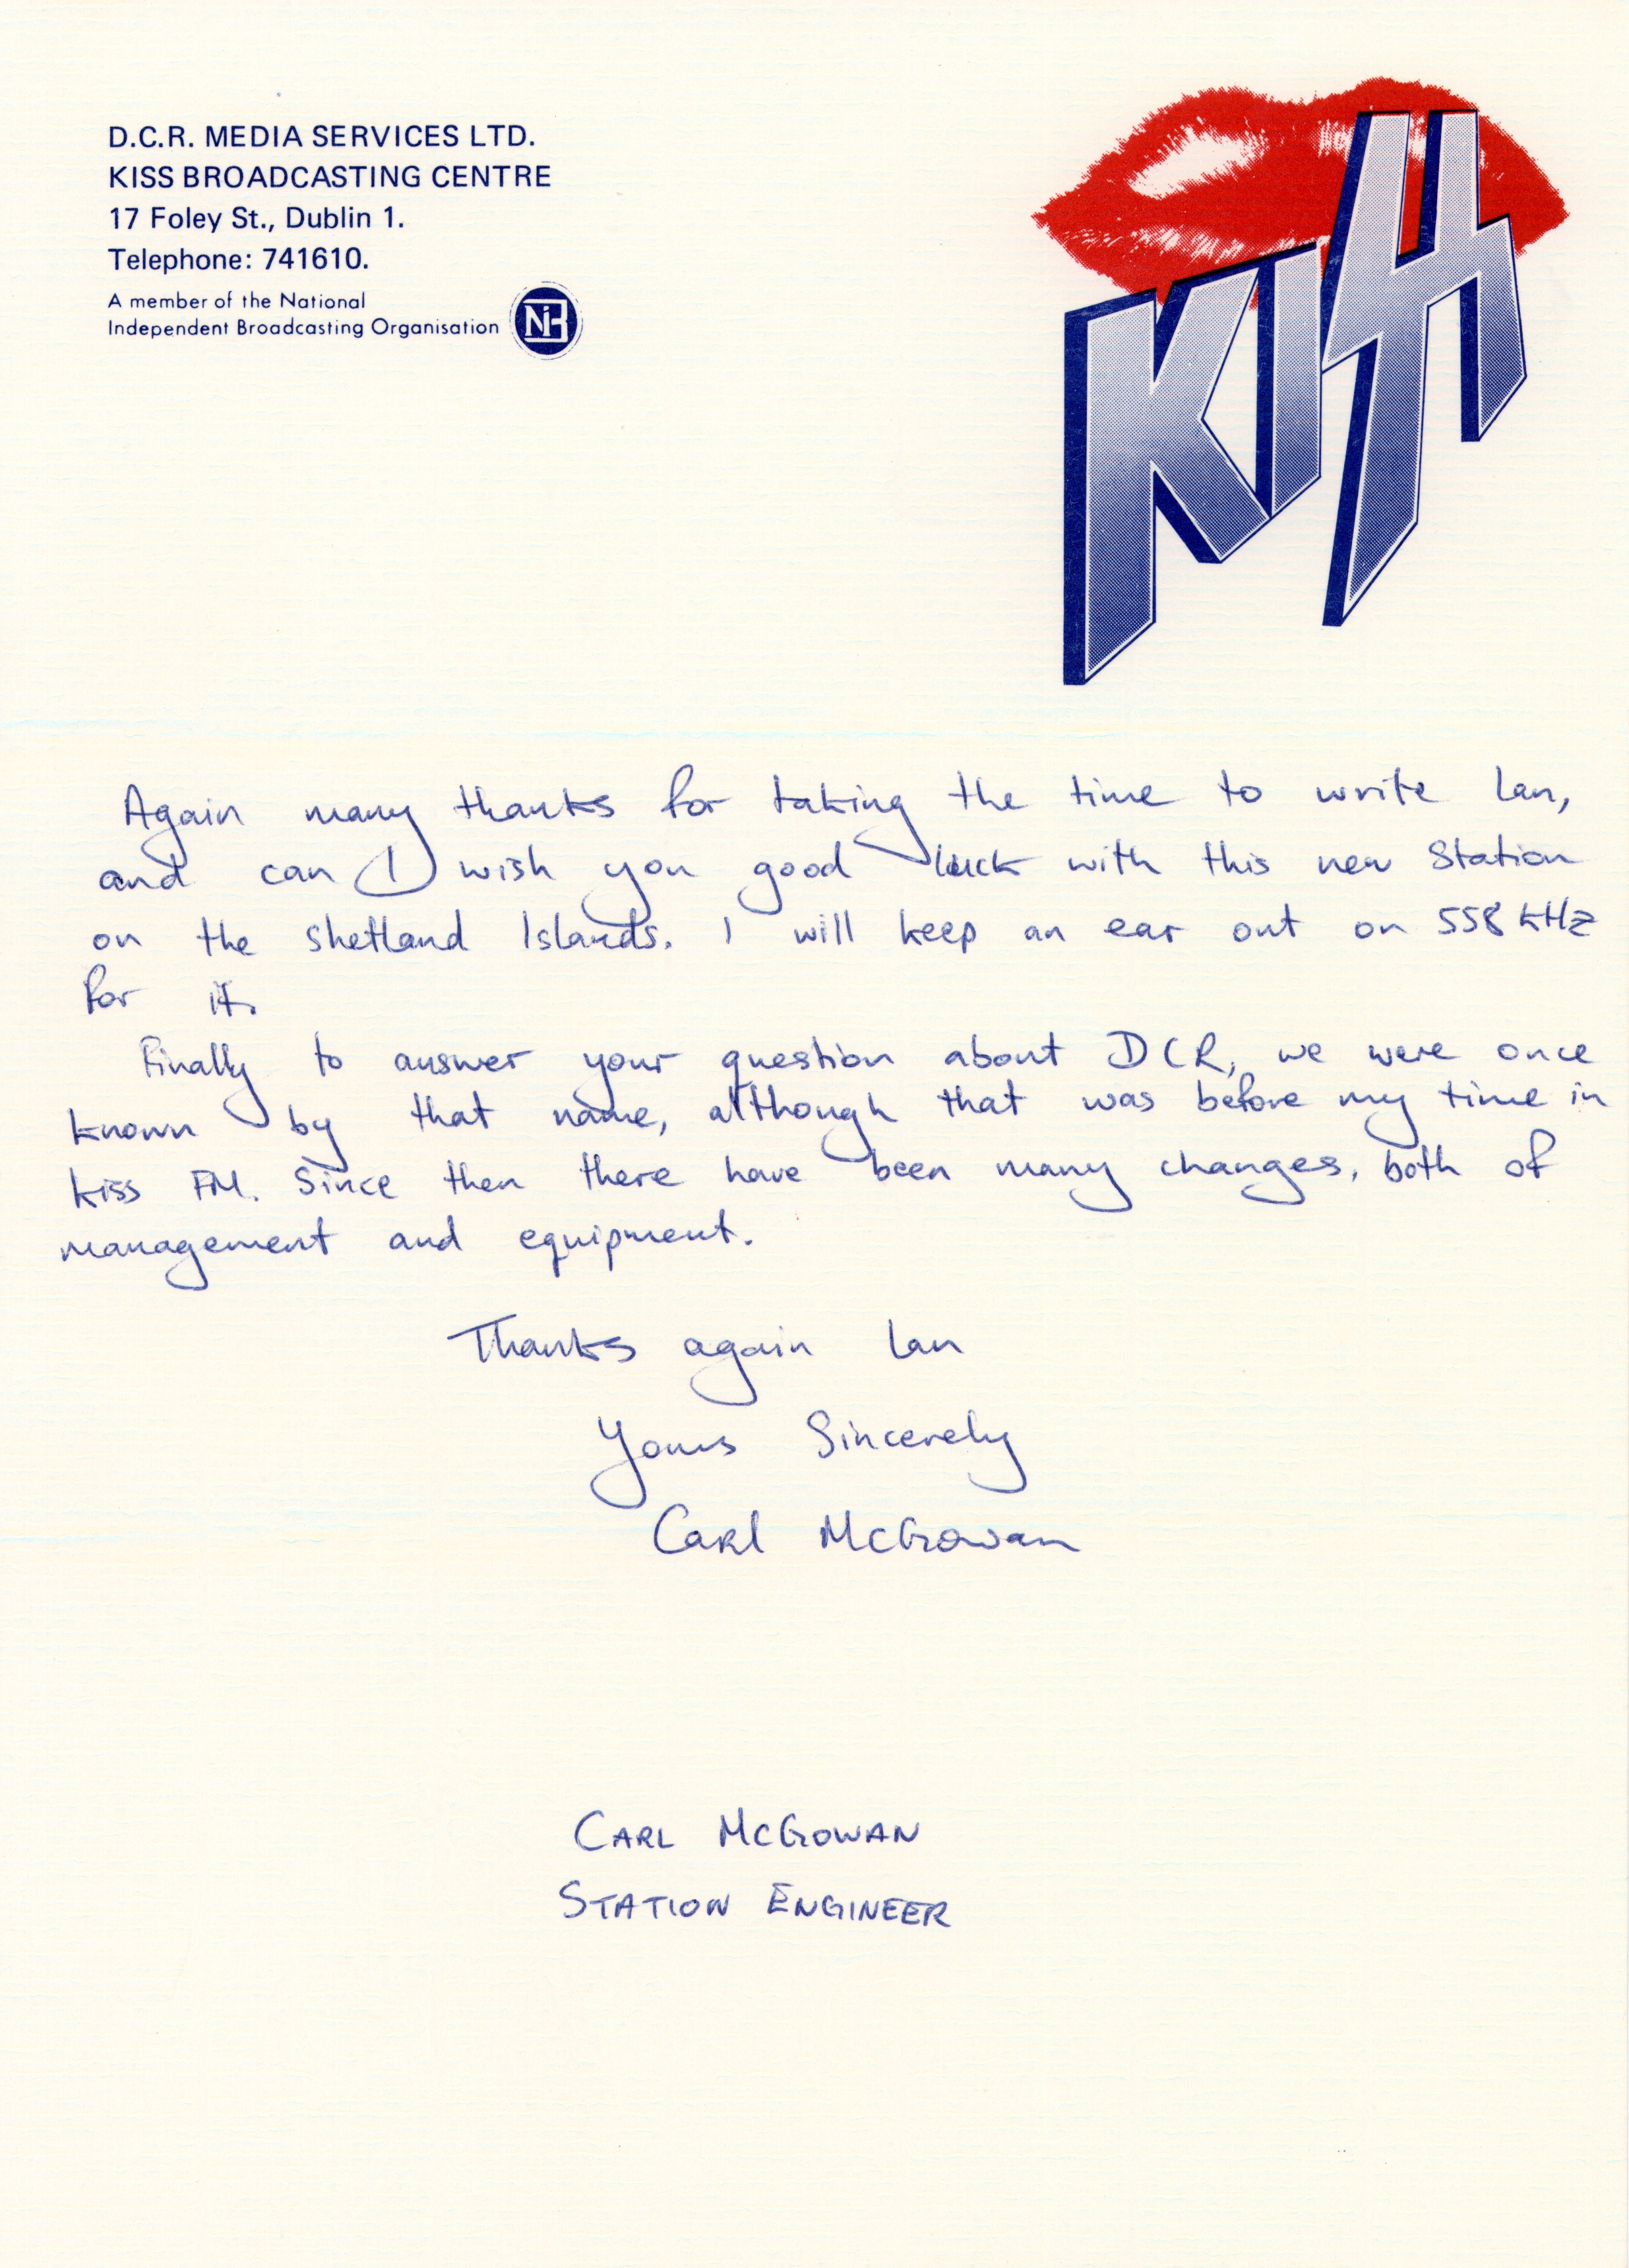 D.C.R. MEDIA SERVICES LTD.
KISS BROADCASTING CENTRE
17 Foley St., Dublin 1.
Telephone: 741610.
A member of the National
Independent Broadcasting Organisation
NIB
KISS
Again many thanks for taking the time to write Ian,
and can I wish you good luck with this new Station
on the Shetland Islands. I will keep an ear out on 558 kHz
for it.
Finally to answer your question about DCR, we were once
known by that name, although that was before my time in
kiss FM. Since then there have been many changes, both of
management and equipment.
Thanks again Ian
Yours Sincerely
Carl McGowan
CARL McGOWAN
STATION ENGINEER